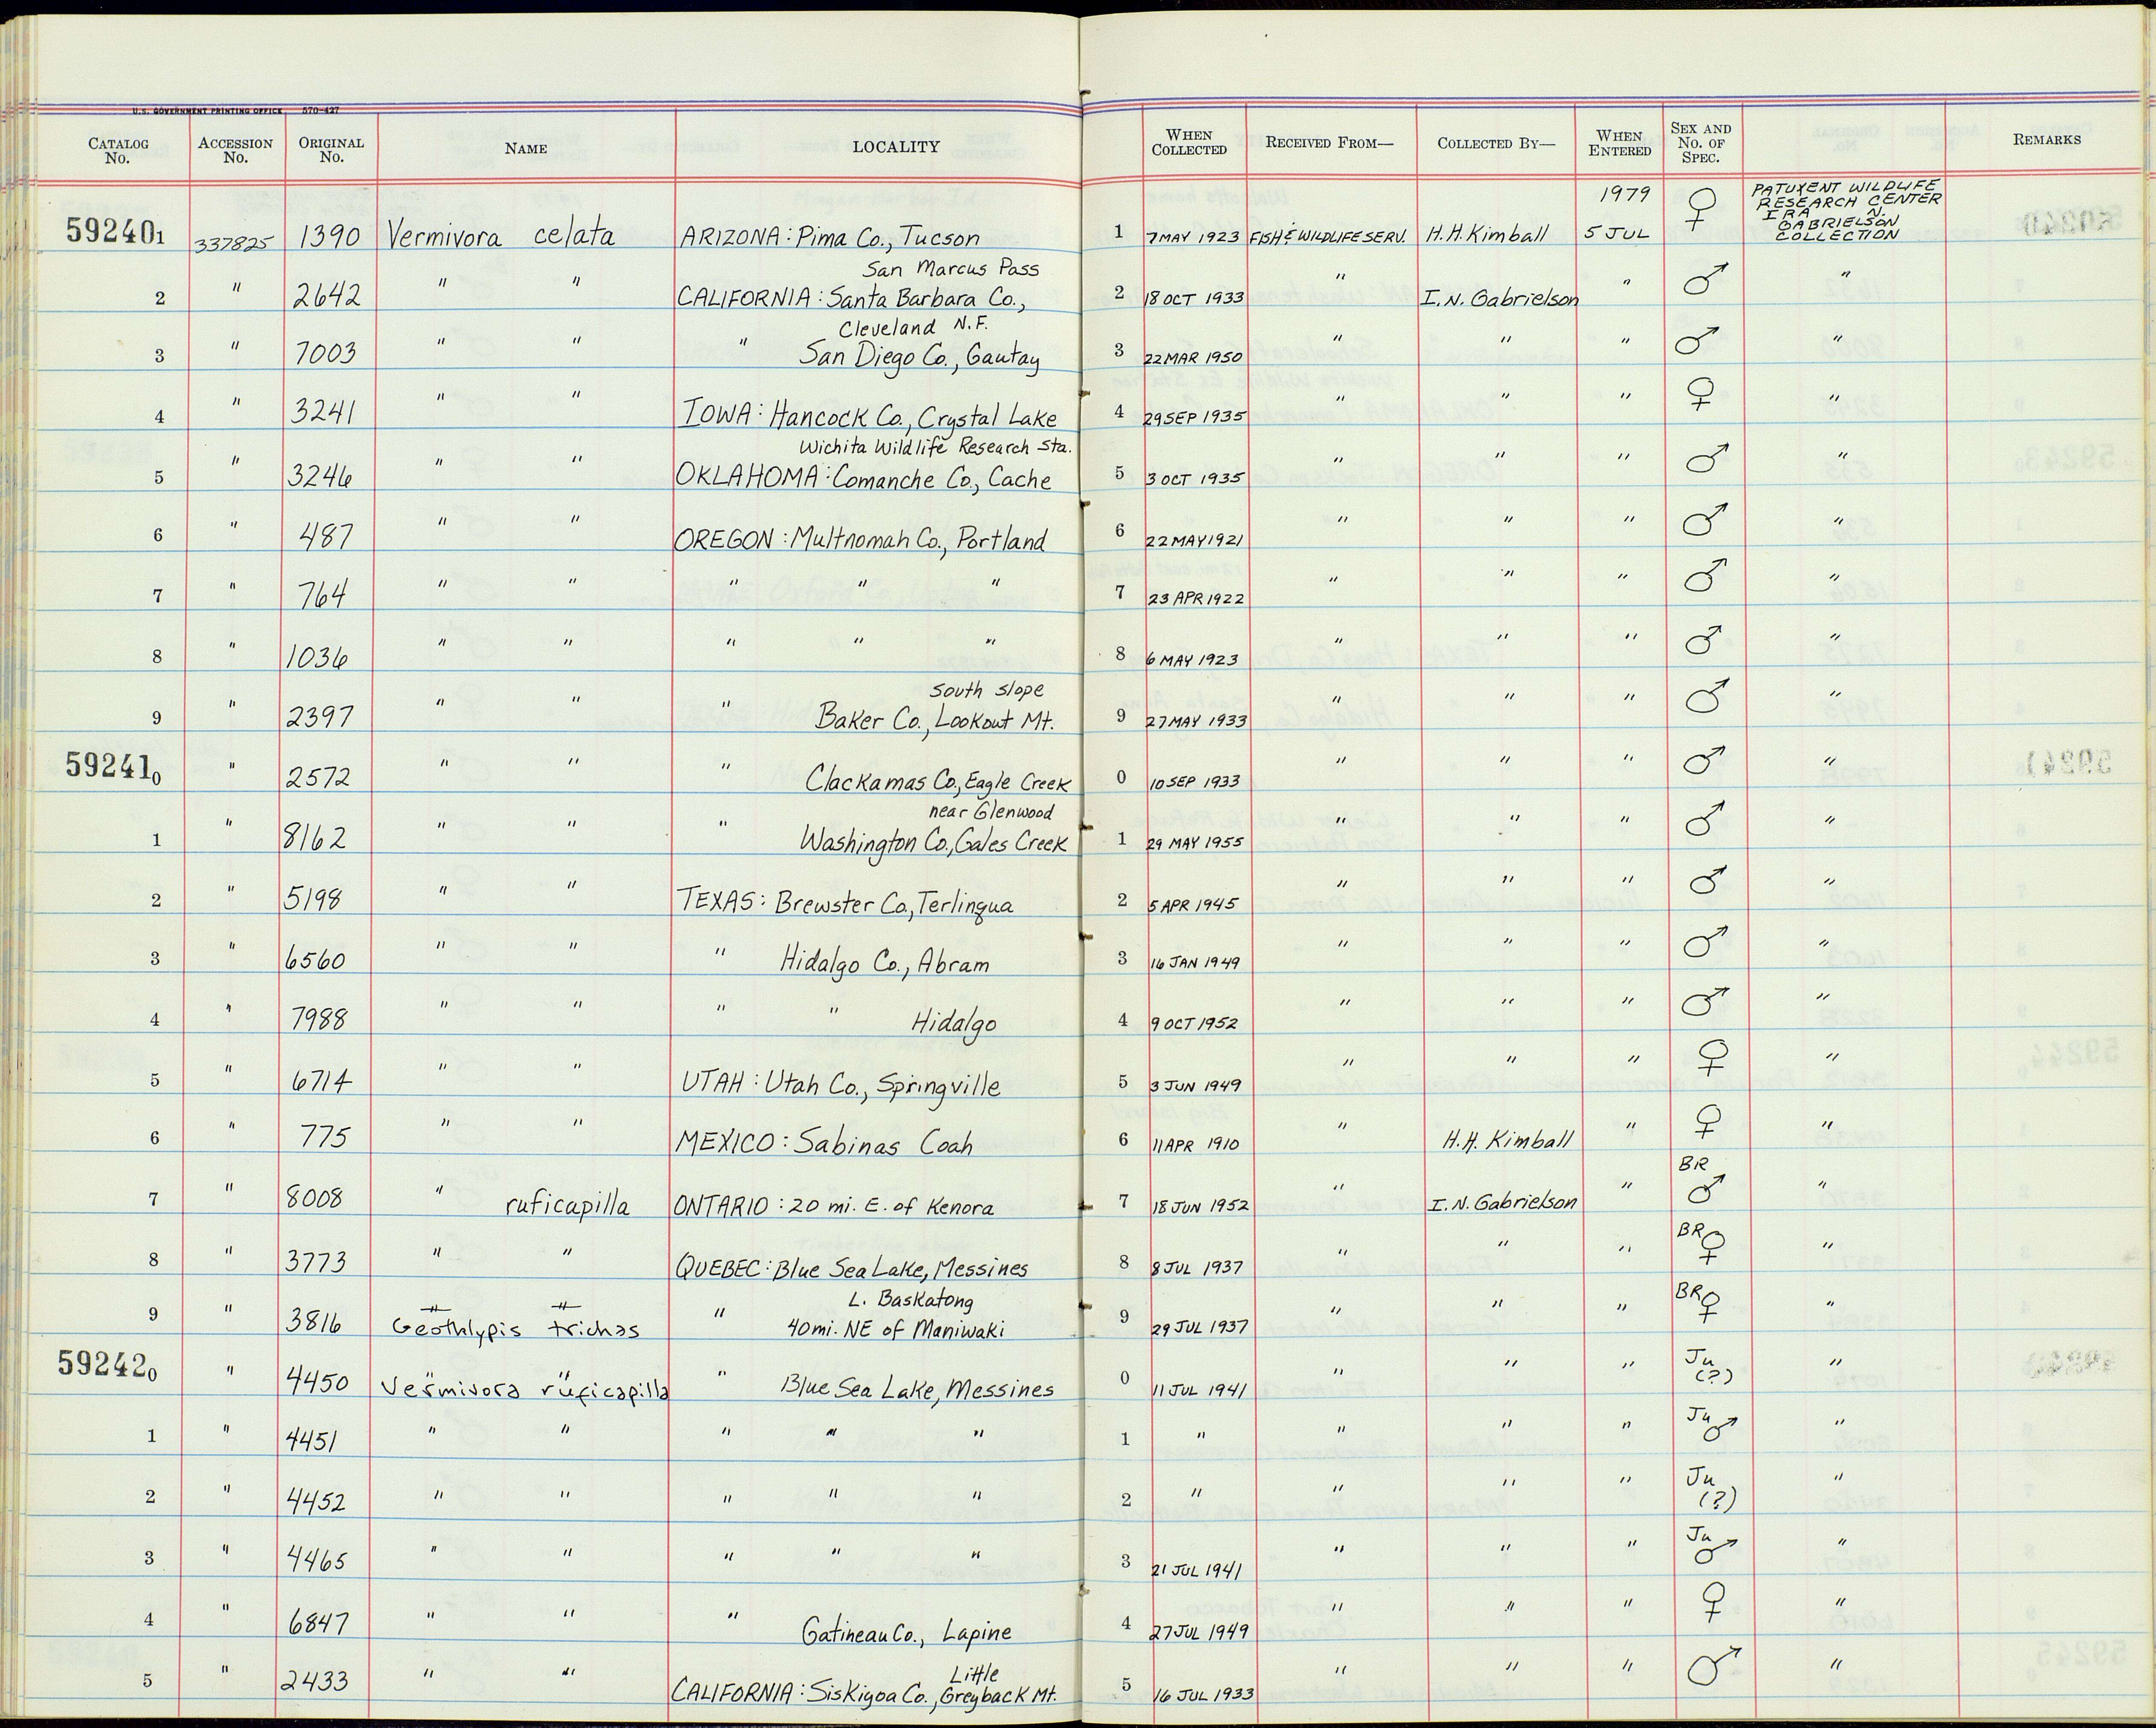 U.S. GOVERNMENT PRINTING OFFICE 570-427
CATALOG No. ACCESSION No. ORIGINAL No. NAME LOCALITY WHEN COLLECTED RECEIVED FROM— COLLECTED BY— WHEN ENTERED SEX AND No. OF SPEC. REMARKS
1979 PATUXENT WILDLIFE RESEARCH CENTER IRA N. GABRIELSON COLLECTION
592401 337825 1390 Vermivora celata ARIZONA: Pima Co., Tucson 1 7 MAY 1923 FISH & WILDLIFE SERV. H.H. Kimball 5 JUL ♀
San Marcus Pass
2 " 2642 " " CALIFORNIA: Santa Barbara Co., 2 18 OCT 1933 " I.N. Gabrielson " ♂ "
Cleveland N.F.
3 " 7003 " " " San Diego Co., Gautay 3 22 MAR 1950 " " " ♂ "
4 " 3241 " " IOWA: Hancock Co., Crystal Lake 4 29 SEP 1935 " " " ♀ "
Wichita Wildlife Research Sta.
5 " 3246 " " OKLAHOMA: Comanche Co., Cache 5 3 OCT 1935 " " " ♂ "
6 " 487 " " OREGON: Multnomah Co., Portland 6 22 MAY 1921 " " " ♂ "
7 " 764 " " " " " 7 23 APR 1922 " " " ♂ "
8 " 1036 " " " " " 8 6 MAY 1923 " " " ♂ "
south slope
9 " 2397 " " " Baker Co., Lookout Mt. 9 27 MAY 1933 " " " ♂ "
592410 " 2572 " " " Clackamas Co., Eagle Creek 0 10 SEP 1933 " " " ♂ "
near Glenwood
1 " 8162 " " " Washington Co., Gales Creek 1 29 MAY 1955 " " " ♂ "
2 " 5198 " " TEXAS: Brewster Co., Terlingua 2 5 APR 1945 " " " ♂ "
3 " 6560 " " " Hidalgo Co., Abram 3 16 JAN 1949 " " " ♂ "
4 " 7988 " " " " Hidalgo 4 9 OCT 1952 " " " ♂ "
5 " 6714 " " UTAH: Utah Co., Springville 5 3 JUN 1949 " " " ♀ "
6 " 775 " " MEXICO: Sabinas Coah 6 11 APR 1910 " H.H. Kimball " ♀ "
7 " 8008 " ruficapilla ONTARIO: 20 mi. E. of Kenora 7 18 JUN 1952 " I.N. Gabrielson " BR ♂ "
8 " 3773 " " QUEBEC: Blue Sea Lake, Messines 8 8 JUL 1937 " " " BR ♀ "
L. Baskatong
9 " 3816 Geothlypis trichas " 40 mi. NE of Maniwaki 9 29 JUL 1937 " " " BR ♀ "
592420 " 4450 Vermivora ruficapilla " Blue Sea Lake, Messines 0 11 JUL 1941 " " " Ju (?) "
1 " 4451 " " " " " 1 " " " " Ju ♂ "
2 " 4452 " " " " " 2 " " " " Ju (?) "
3 " 4465 " " " " " 3 21 JUL 1941 " " " Ju ♂ "
4 " 6847 " " " Gatineau Co., Lapine 4 27 JUL 1949 " " " ♀ "
Little
5 " 2433 " " CALIFORNIA: Siskiyoa Co., Greyback Mt. 5 16 JUL 1933 " " " ♂ "